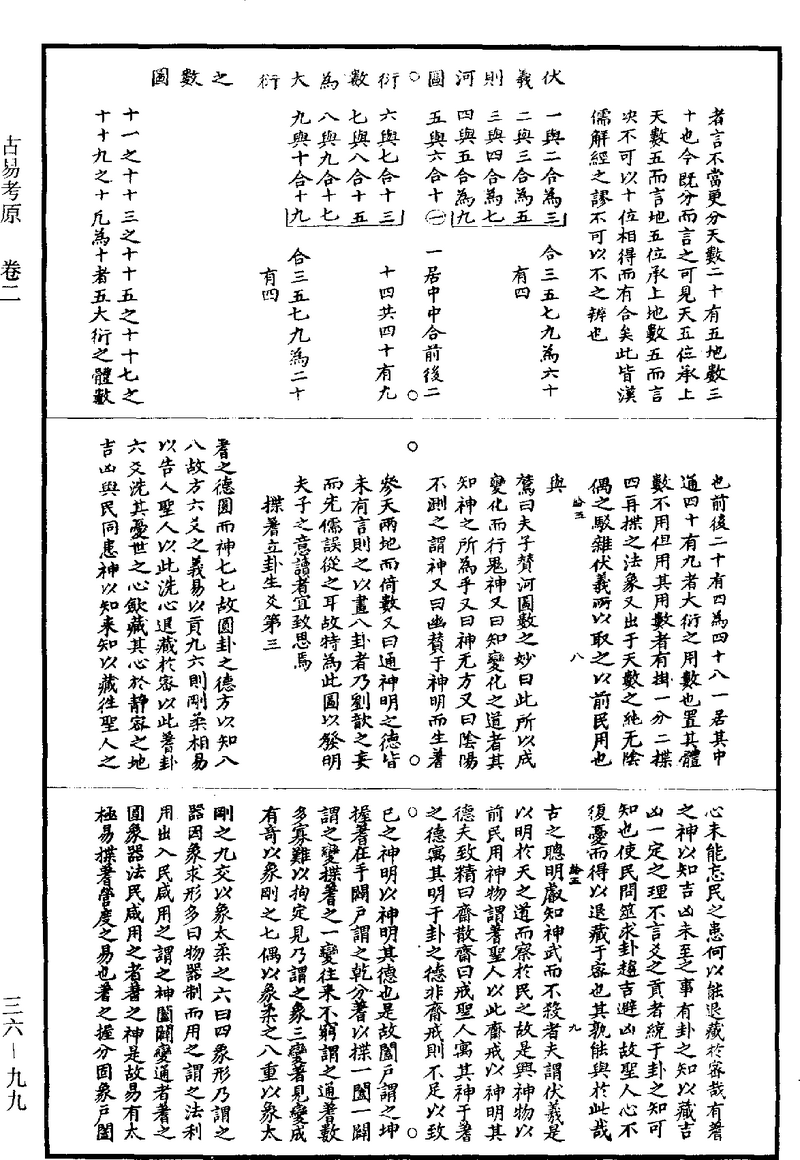 古易考原　卷二
三六—九九
者言不當更分天數二十有五地數三
十也今既分而言之可見天五位承上
天數五而言地五位承上地數五而言
決不可以十位相得而有合矣此皆漢
儒解經之謬不可以不之辨也
伏羲則河圖○衍數為大衍之數圖
一與二合為三
二與三合為五
三與四合為七
四與五合為九
合三五七九為六十
有四
五與六合十一
一居中中合前後二
十四共四十有九
六與七合十三
七與八合十五
八與九合十七
九與十合十九
合三五七九為二十
有四
十一之十十三之十十五之十十七之
十十九之十凡為十者五大衍之體數
也前後二十有四為四十八一居其中
通四十有九者大衍之用數也置其體
數不用但用其用數者有掛一分二揲
四再揲之法象又出于天數之純无陰
偶之駁雜伏羲所以取之以前民用也
八
與
鶩曰夫子贊河圖數之妙曰此所以成
變化而行鬼神又曰知變化之道者其
知神之所為乎又曰神无方又曰陰陽
不測之謂神又曰幽贊于神明而生蓍
參天兩地而倚數又曰通神明之德皆
未有言則之以畫八卦者乃劉歆之妄
而先儒誤從之耳故特為此圖以發明
夫子之意讀者宜致思焉
揲蓍立卦生爻第三
蓍之德圓而神七七故圓卦之德方以知八
八故方六爻之義易以貢九六則剛柔相易
以告人聖人以此洗心退藏於密以此蓍卦
六爻洗其憂世之心歛藏其心於静密之地
吉凶與民同患神以知来知以藏徃聖人之
心未能忘民之患何以能退藏於密哉有蓍
之神以知吉凶未至之事有卦之知以藏吉
凶一定之理不言爻之貢者統于卦之知可
知也使民問筮求卦趨吉避凶故聖人心不
復憂而得以退藏于密也其孰能與於此哉
古之聰明叡知神武而不殺者夫謂伏羲是
九
以明於天之道而察於民之故是興神物以
前民用神物謂蓍聖人以此齋戒以神明其
德夫致精曰齋散齋曰戒聖人寓其神于蓍
之德寓其明于卦之德非齋戒則不足以致
已之神明以神明其德也是故闔戸謂之坤
握蓍在手闢戸謂之乾分蓍以揲一闔一闢
謂之變揲蓍之一變往来不窮謂之通蓍數
多寡難以拘定見乃謂之象三變蓍見變成
有奇以象剛之七偶以象柔之八重以象太
剛之九交以象太柔之六曰四象形乃謂之
器因象求形多曰物器制而用之謂之法利
用出入民咸用之謂之神闔闢變通者蓍之
圓象器法民咸用之者蓍之神是故易有太
極易揲蓍營度之易也蓍之握分固象戸闔